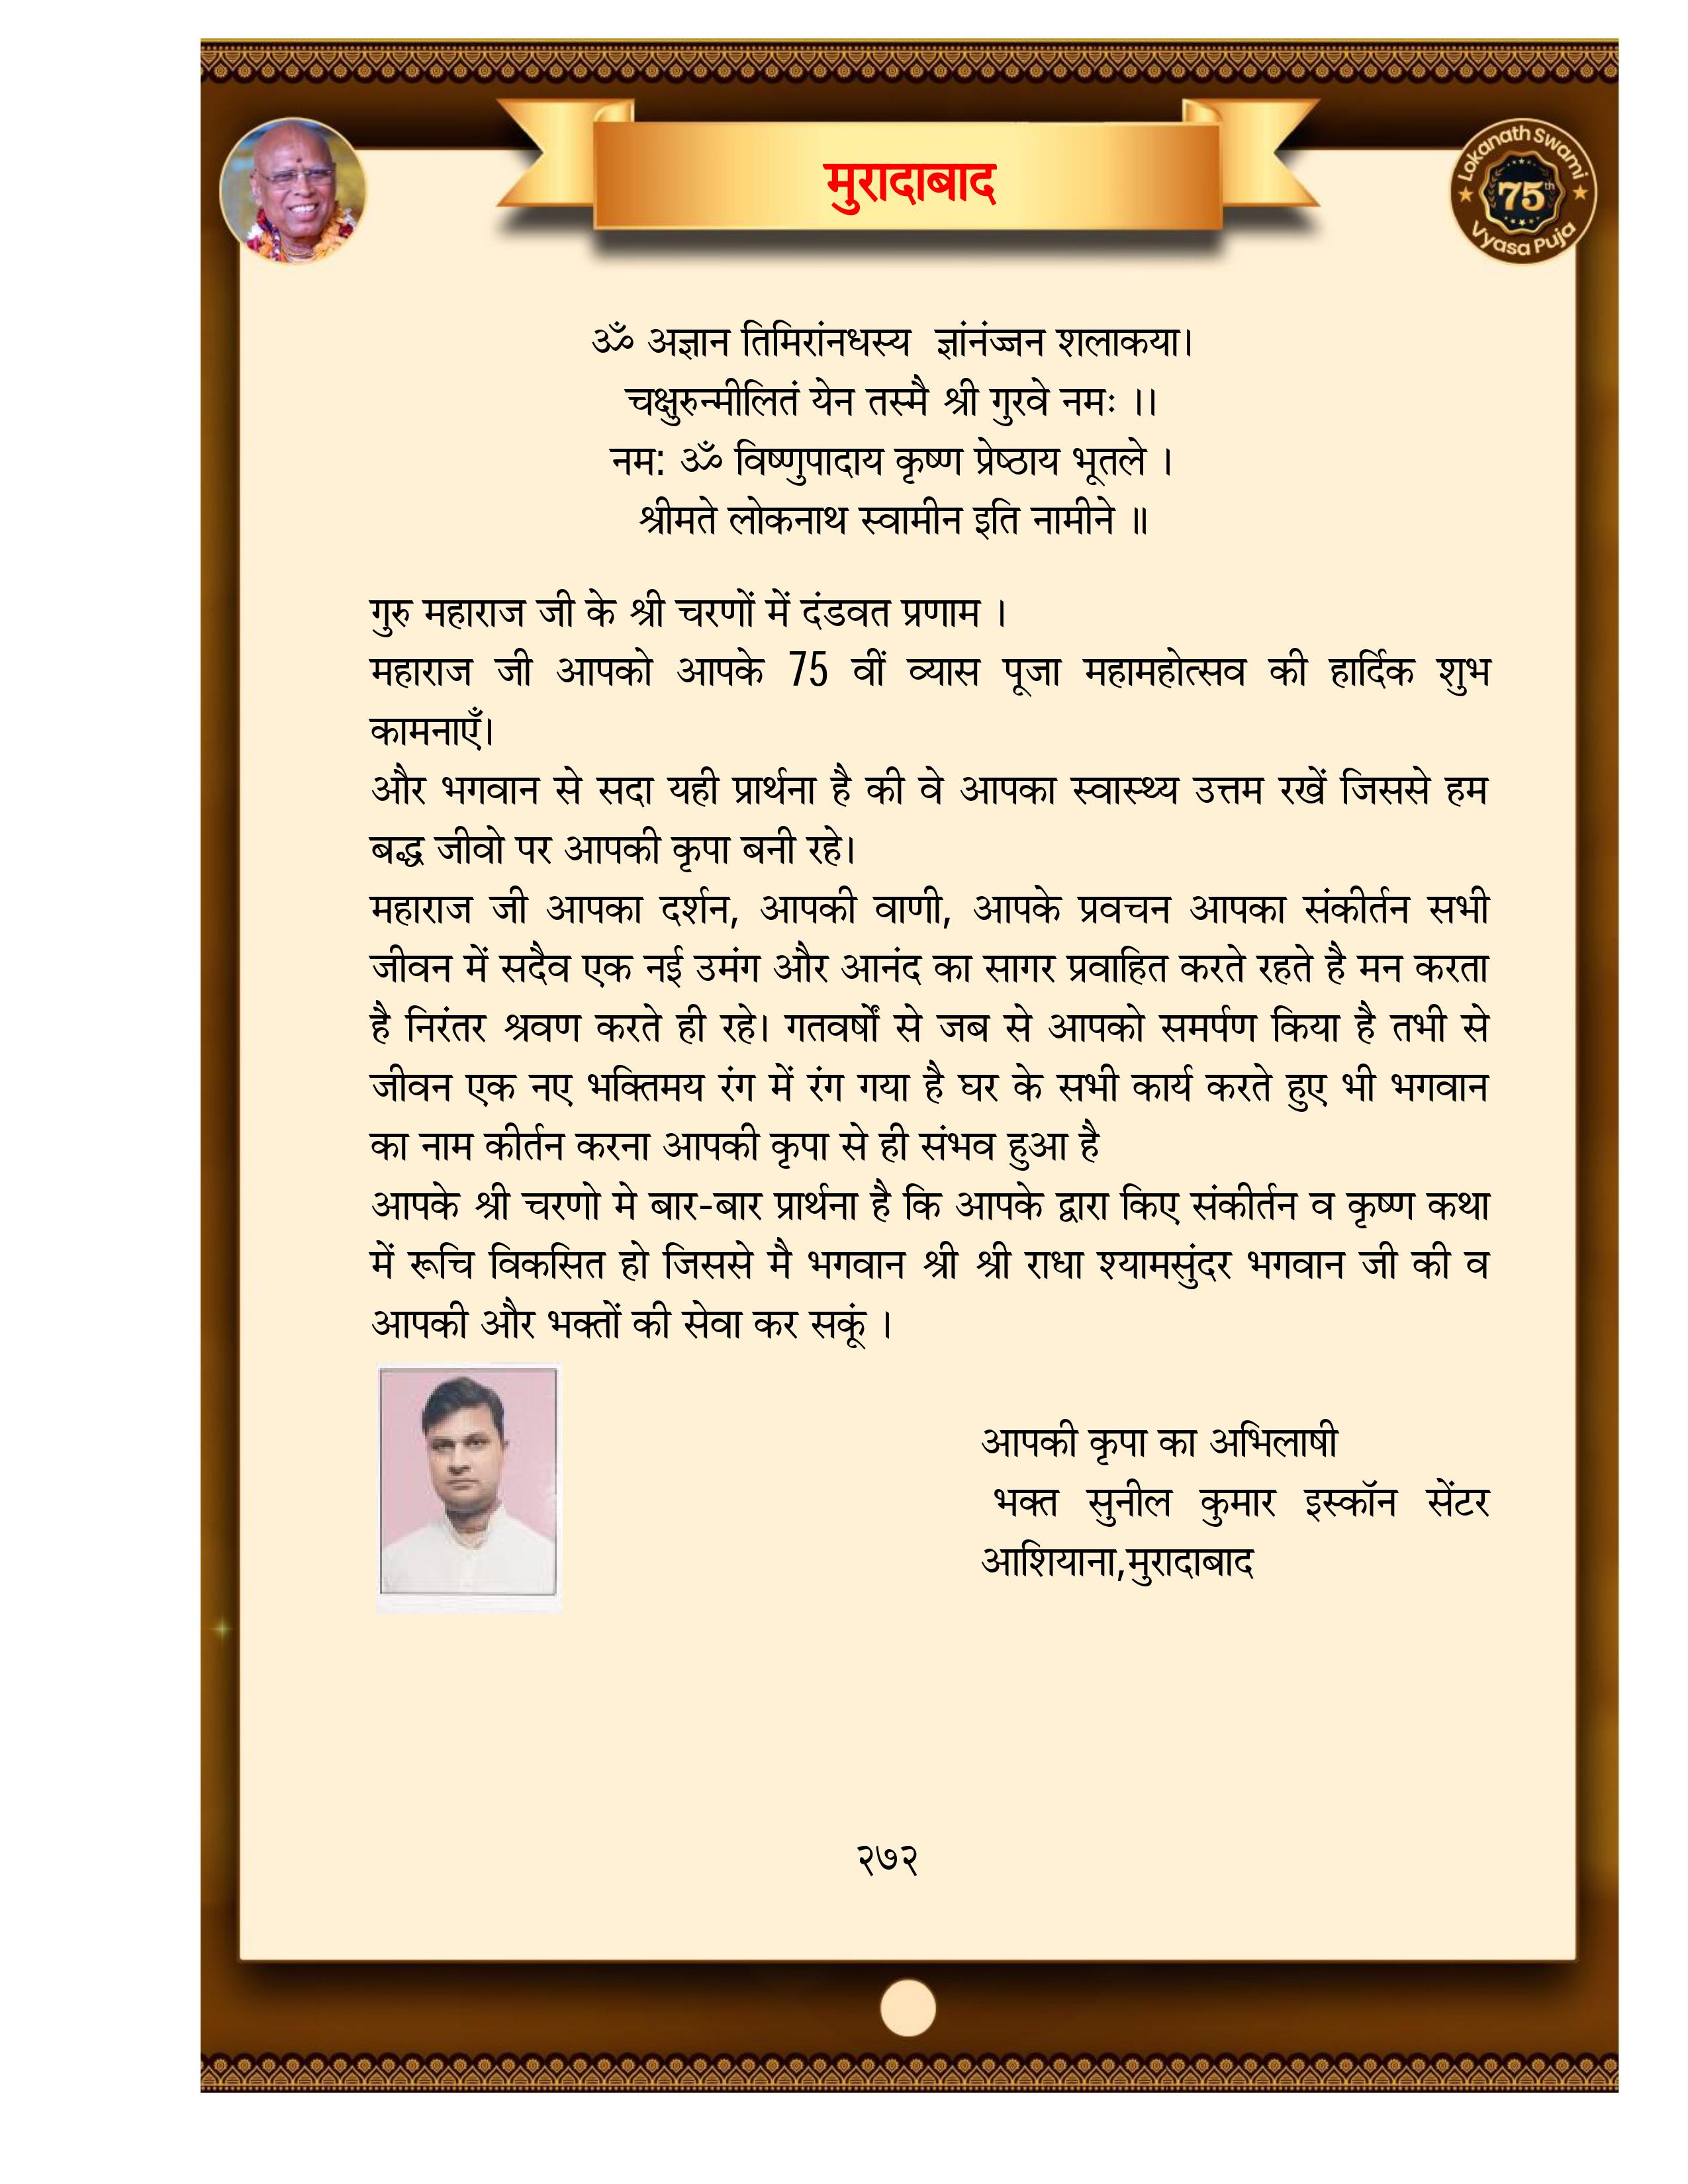 मुरादाबाद
Lokanath Swami
75th
Vyasa Puja
ॐ अज्ञान तिमिरांनधस्य ज्ञांनंज्जन शलाकया।
चक्षुरुन्मीलितं येन तस्मै श्री गुरवे नमः ।।
नम: ॐ विष्णुपादाय कृष्ण प्रेष्ठाय भूतले ।
श्रीमते लोकनाथ स्वामीन इति नामीने ॥
गुरु महाराज जी के श्री चरणों में दंडवत प्रणाम ।
महाराज जी आपको आपके 75 वीं व्यास पूजा महामहोत्सव की हार्दिक शुभ
कामनाएँ।
और भगवान से सदा यही प्रार्थना है की वे आपका स्वास्थ्य उत्तम रखें जिससे हम
बद्ध जीवो पर आपकी कृपा बनी रहे।
महाराज जी आपका दर्शन, आपकी वाणी, आपके प्रवचन आपका संकीर्तन सभी
जीवन में सदैव एक नई उमंग और आनंद का सागर प्रवाहित करते रहते है मन करता
है निरंतर श्रवण करते ही रहे। गतवर्षों से जब से आपको समर्पण किया है तभी से
जीवन एक नए भक्तिमय रंग में रंग गया है घर के सभी कार्य करते हुए भी भगवान
का नाम कीर्तन करना आपकी कृपा से ही संभव हुआ है
आपके श्री चरणो मे बार-बार प्रार्थना है कि आपके द्वारा किए संकीर्तन व कृष्ण कथा
में रूचि विकसित हो जिससे मै भगवान श्री श्री राधा श्यामसुंदर भगवान जी की व
आपकी और भक्तों की सेवा कर सकूं ।
आपकी कृपा का अभिलाषी
भक्त सुनील कुमार इस्कॉन सेंटर
आशियाना,मुरादाबाद
२७२